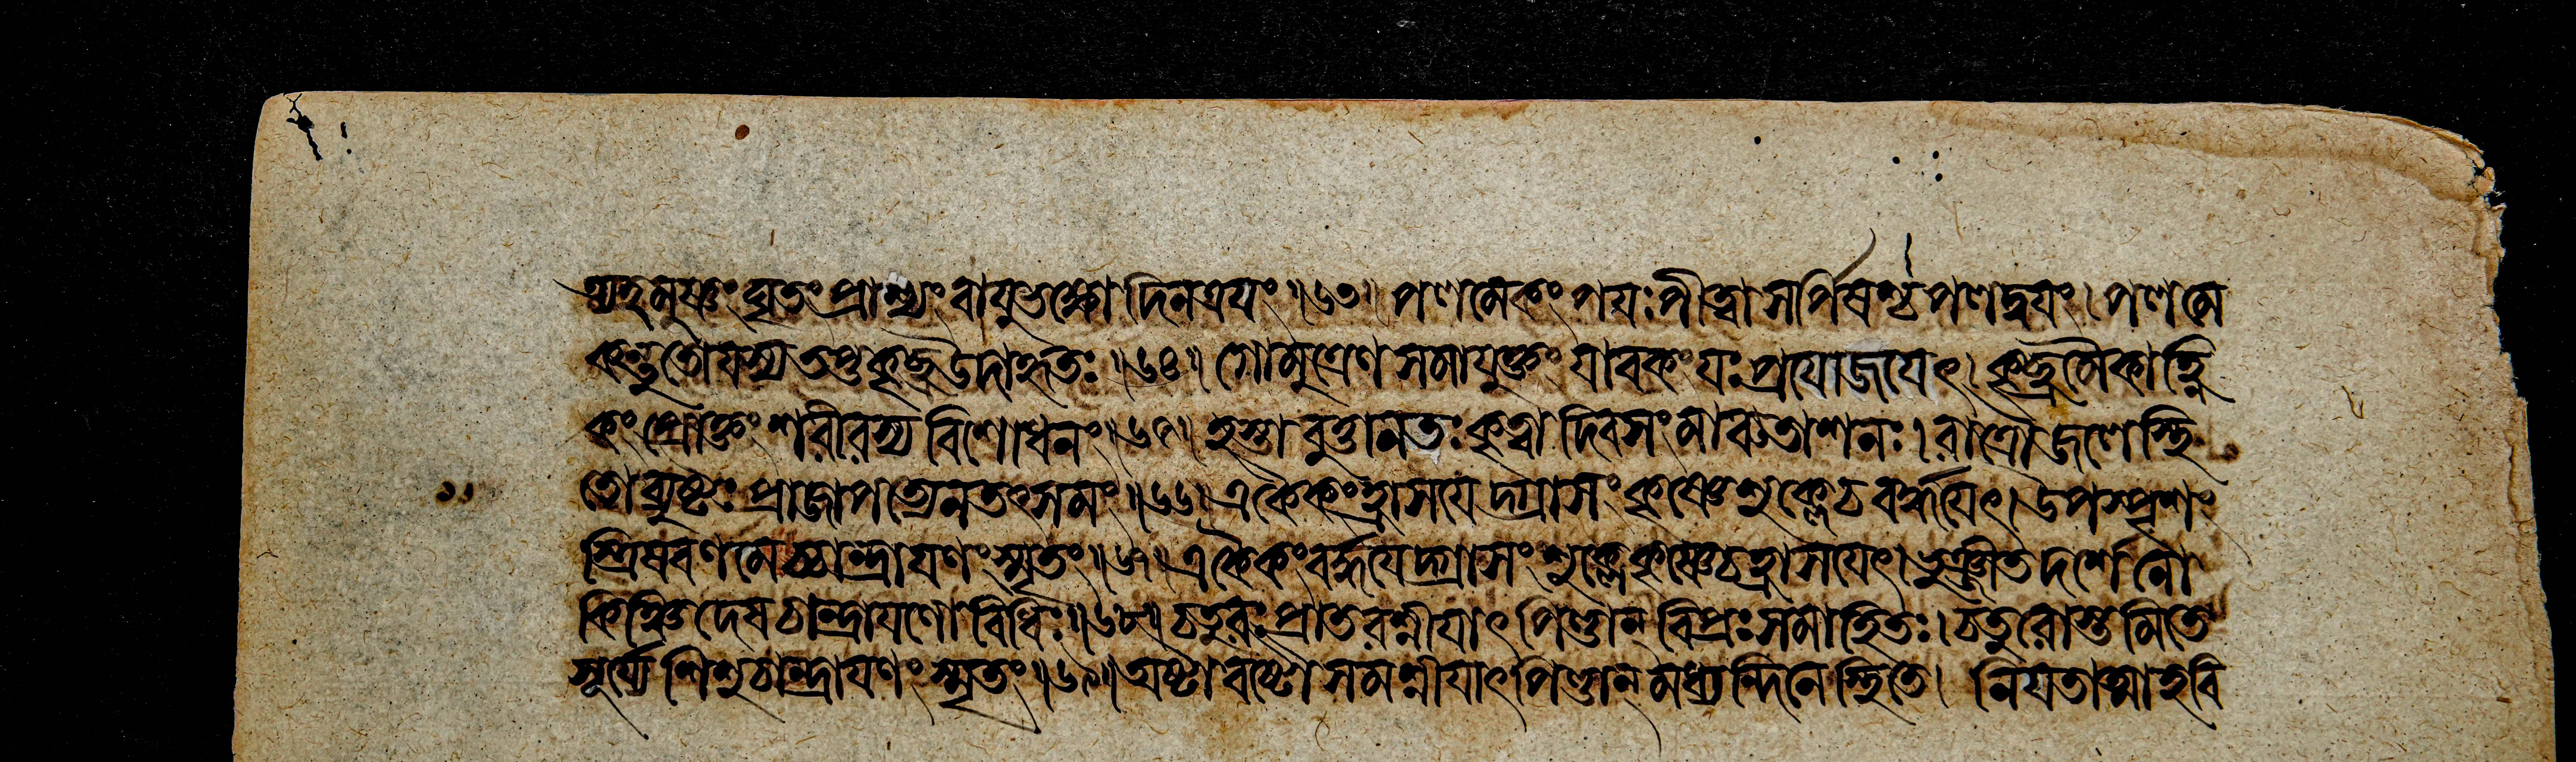 ত্র্যহমুষ্ণং ঘৃতং প্রাশ্যং বায়ুভক্ষো দিনত্রয়ং ॥৬৩॥ পলমেকং পয়ঃ পীত্বা সর্পিষশ্চ পলদ্বয়ং। পলমে
কন্তু তোযস্য তপ্তকৃচ্ছ্র উদাহৃতঃ ॥৬৪॥ গোমুত্রেণ সমাযুক্তং যাবকং যঃ প্রযোজযেৎ। কৃচ্ছ্রমৈকাহ্নি
কং প্রোক্তং শরীরস্য বিশোধনং ॥৬৫॥ হস্তাবুত্তানতঃ কৃত্বা দিবসং মারুতাশনঃ। রাত্রৌ জলে স্থি
তো ব্যুষ্টঃ প্রাজাপত্যেন তৎসমং ॥৬৬॥ একৈকং হ্রাসযেদ্গ্রাসং কৃষ্ণে শুক্লে চ বর্দ্ধযেৎ। উপস্পৃশং
স্ত্রিষবণমেচ্চান্দ্রাযণং স্মৃতং ॥৬৭॥ একৈকং বর্দ্ধযেদ্গ্রাসং শুক্লে কৃষ্ণে চ হ্রাসযেৎ। ভুঞ্জীত দর্শে নো
কিঞ্চিদেষ চান্দ্রাযণো বিধিঃ ॥৬৮॥ চতুরঃ প্রাতরশ্নীযাৎ পিণ্ডান্ বিপ্রঃ সমাহিতঃ। চতুরোস্তমিতে
সূর্য্যে শিশুচান্দ্রাযণং স্মৃতং ॥৬৯॥ অষ্টাবষ্টৌ সমশ্নীযাৎ পিণ্ডান্ মধ্যন্দিনে স্থিতে। নিযতাত্মা হবি